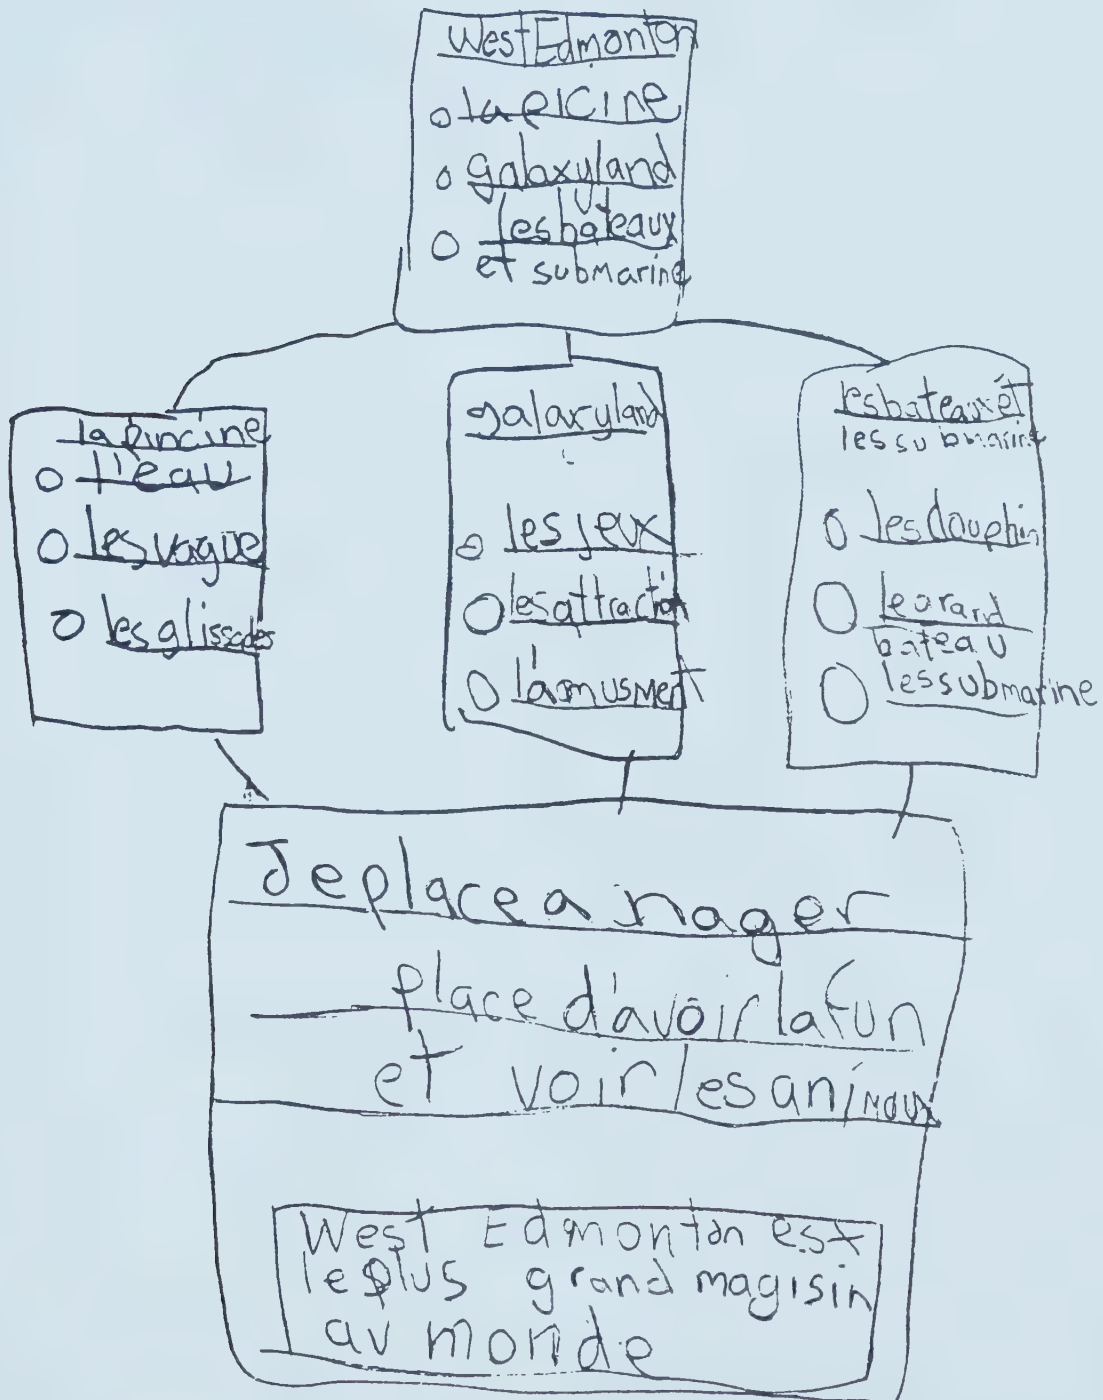 West Edmonton
la picine
galaxyland
les bateaux
et submarine
la pincine
l'eau
les vague
les glissades
galaxyland
les jeux
les attraction
l'amusment
les bateaux et
les submarine
les dauphin
le grand
bateau
les submarine
Je place a nager
place d'avoir la fun
et voir les animaux
West Edmonton est
le plus grand magisin
au monde